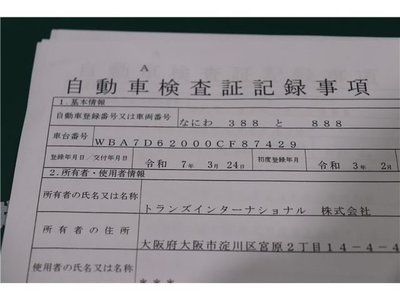 A
自動車検査証記録事項
1. 基本情報
自動車登録番号又は車両番号 なにわ 388 と 888
車台番号 WBA7D62000CF87429
登録年月日／交付年月日 令和 7年 3月 24日 初度登録年月 令和 3年 2月
2. 所有者・使用者情報
所有者の氏名又は名称 トランズインターナショナル 株式会社
所有者の住所 大阪府大阪市淀川区宮原2丁目14－4－4
使用者の氏名又は名称 ＊＊＊